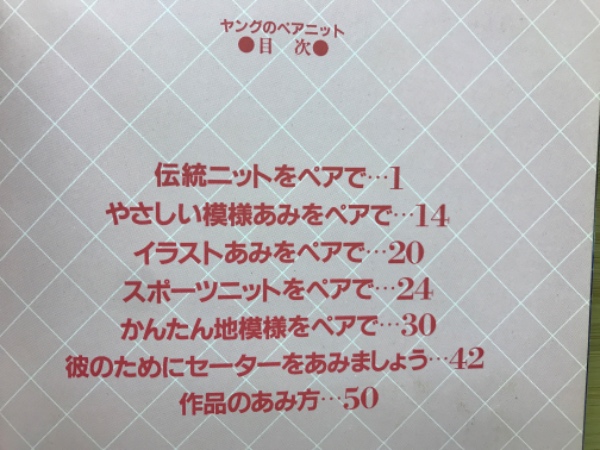 ヤングのペアニット
●目 次●
伝統ニットをペアで…1
やさしい模様あみをペアで…14
イラストあみをペアで…20
スポーツニットをペアで…24
かんたん地模様をペアで…30
彼のためにセーターをあみましょう…42
作品のあみ方…50